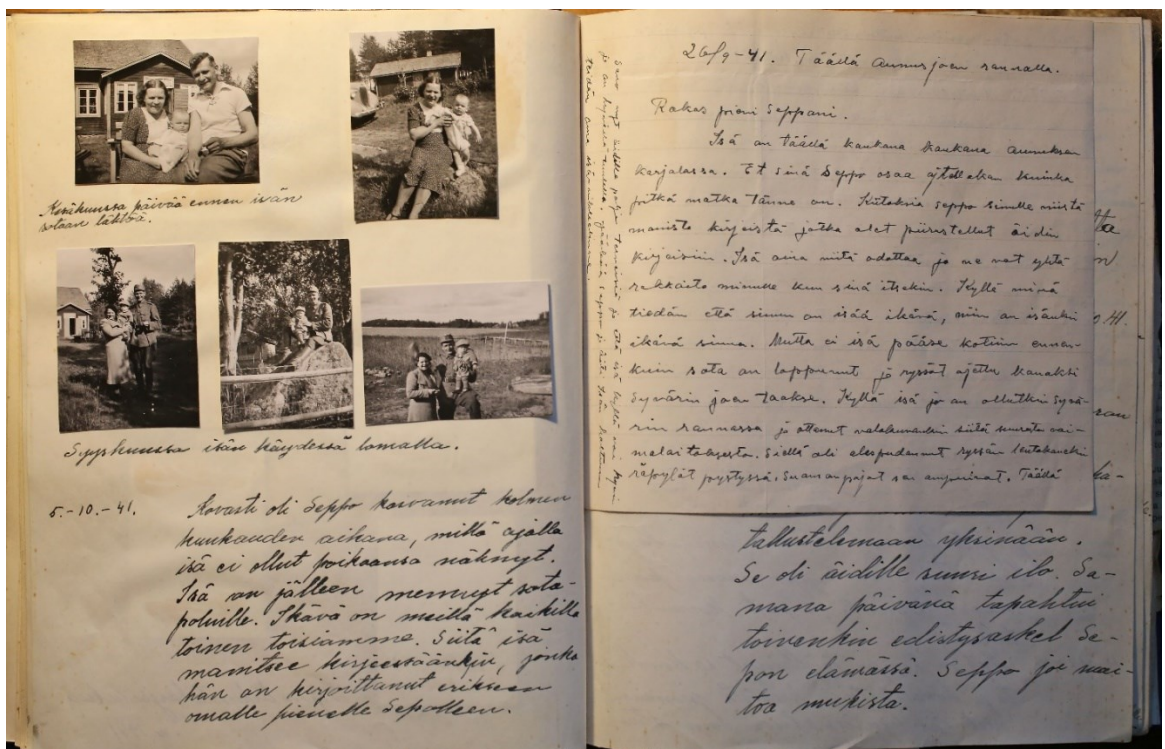 Kesäkuussa päivää ennen isän
sotaan lähtöä.
Syyskuussa isän käydessä lomalla.
5.-10.-41. Kovasti oli Seppo kasvanut kolmen
kuukauden aikana, millä ajalla
isä ei ollut poikaansa nähnyt.
Isä on jälleen mennyt sota-
poluille. Ikävä on meillä kaikilla
toinen toisiamme. Siitä isä
mainitsee kirjeessäänkin, jonka
hän on kirjoittanut erikseen
omalle pienelle Sepolleen.
26/9-41. Täällä Aunusjoen rannalla.
Rakas pieni Seppani.
Isä on täällä kaukana kaukana Aunuksen
karjalassa. Et sinä Seppo osaa ajatellakan kuinka
pitkä matka tänne on. Kiitoksia Seppo sinulle niistä
monista kirjeistä jotka olet piirustellut äidin
kirjeisiin. Isä aina niitä odottaa ja ne ovat yhtä
rakkaita minulle kun sinä itsekin. Kyllä minä
tiedän että sinun on isää ikävä, niin on isänkin
ikävä sinua. Mutta ei isä pääse kotiin ennen-
kuin sota on loppunut ja ryssät ajettu kauaksi
Syvärin joen taakse. Kyllä isä jo on ollutkin Syvä-
rin rannassa ja ottanut valokuvankin siitä suuresta voi-
malaitoksesta. Siellä oli alaspudonnut ryssän lentokonekin
räpylät pystyssä. Suomen pojat sen ampuivat. Täällä
tallustelemaan yksinään.
Se oli äidille suuri ilo. Sa-
mana päivänä tapahtui
toinenkin edistysaskel Se-
pon elämässä. Seppo joi mai-
toa mukista.